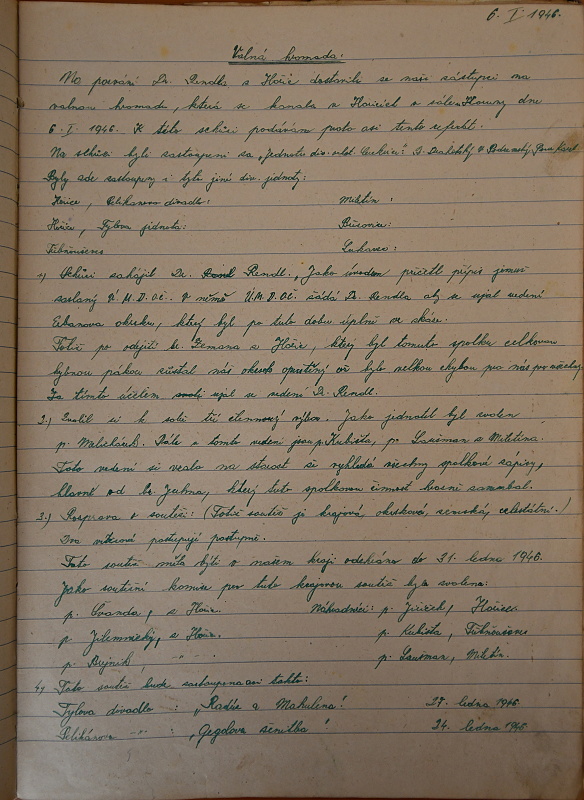 6. I. 1946.
Valná hromada:
Na pozvání Dr. Rendla z Hořic dostavili se naši zástupci na
valnou hromadu, která se konala v Hořicích v sále Koruny dne
6. I. 1946. K této schůzi podávám proto asi tento referát.
Na schůzi byli zastoupeni za „Jednotu div. ochot.
Byly zde zastoupeny i byli jiné div. jednoty:
Hořice, Pelikánovo divadlo: Miletín:
Hořice, Tylova jednota: Bášnice:
Tříbňouševes Lukavec:
1) Schůzi zahájil Dr. Rendl. „Jako úvodem přečetl přípis jemuž
zaslaný Ú.M.D.Oč. V němž Ú.M.D.Oč. žádá Dr. Rendla aby se ujal vedení
Erbenova okrsku, který byl po tuto dobu úplně ve zkáze.
Totiž po odejití br. Zemana z Hořic, který byl tomuto spolku celkovou
hybnou pákou zůstal náš okrsek opuštěný což bylo velkou chybou pro nás pro všechny.
Za tímto účelem ujal se vedení Dr. Rendl.
2.) Zvolil si k sobě tří členný výbor. Jako jednatel byl zvolen
p. Dále v tomto vedení jsou p. Kubišta, p. Laušman z Miletína.
Toto vedení si vzalo na starost si vyhledá všechny spolkové zápisy,
hlavně od br. který tuto spolkovou činnost hodně zanedbal.
3.) Rozprava o soutěži: (Totiž soutěž je krajová, okrsková, zemská, celostátní.)
Dva vítězové postupují postupně.
Tato soutěž měla býti v našem kraji odehrána do 31. ledna 1946.
Jako soutěžní komise pro tuto krajovou soutěž byla zvolena:
p. Cvanda, z Hořic. Náhradníci: p. Jiříček, Hořice.
p. Jilemnický, z Hořic. p. Kubišta, Tříbňouševes
p. Bujnik, „ „ p. Laušman, Miletín.
4) Tato soutěž bude zastoupena asi takto:
Tylovo divadlo: „Radúz a Mahulena“. 27. ledna 1946
Pelikánovo „ : „Gogolova ženitba“. 24. ledna 1946